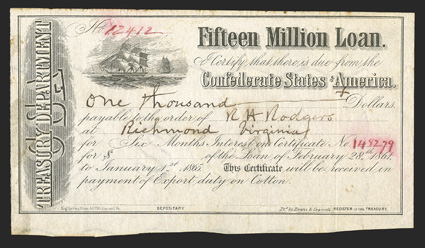 No. 12412
Fifteen Million Loan.
I certify that there is due from the
Confederate States of America,
One thousand Dollars,
payable to the order of R H Rodgers
at Richmond Virginia
for Six Months Interest on Certificate No.
for $ of the Loan of February 28, 1861,
to January 1st 1865 This Certificate will be received in
payment of Export duty on Cotton.
DEPOSITARY
REGISTER OF THE TREASURY.
TREASURY DEPARTMENT